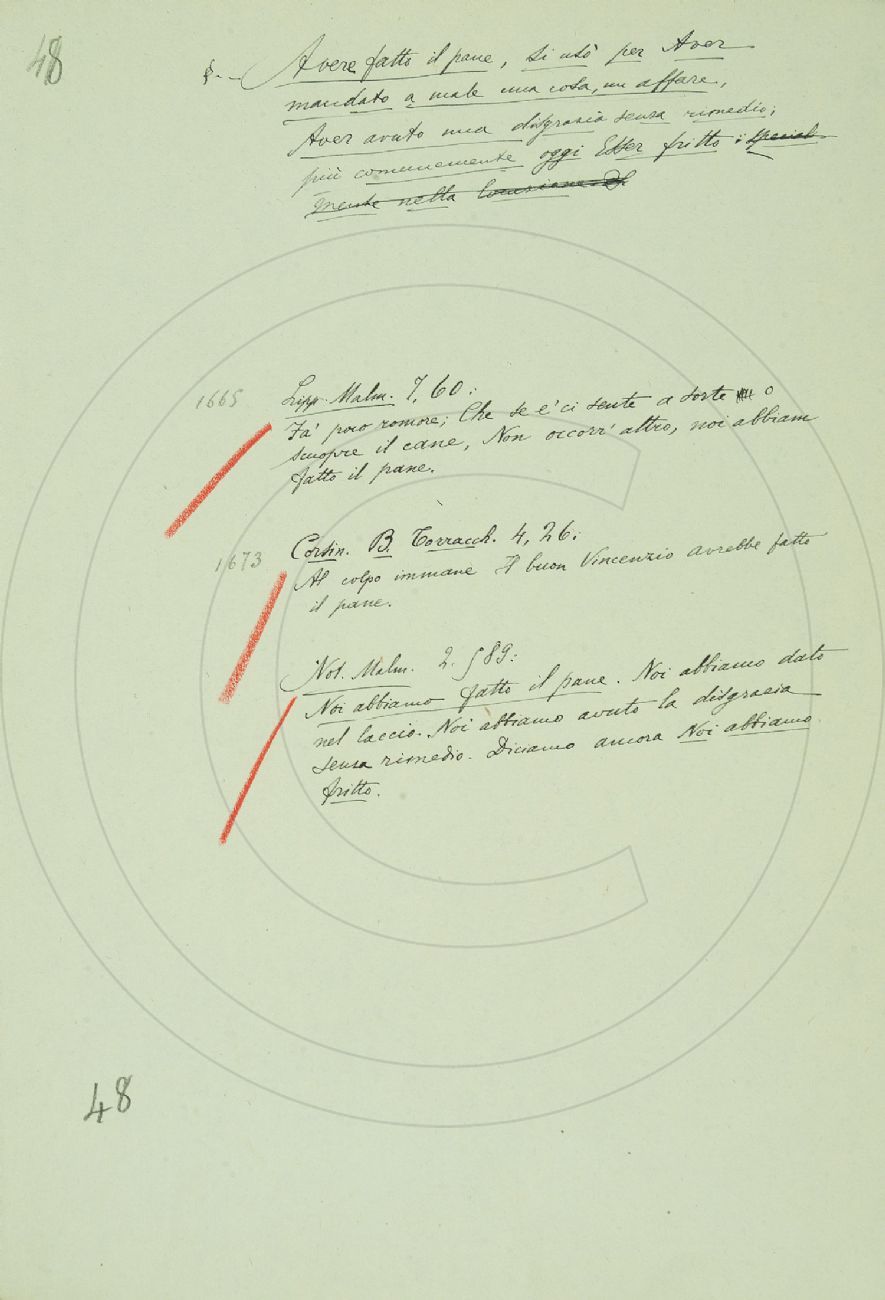 48
§. -- Avere fatto il pane, si usò per Aver
mandato a male una cosa, un affare,
Aver avuto una disgrazia senza rimedio;
più comunemente oggi Esser fritto: special-
mente nella locuzione
1665 Lipp. Malm. 7, 60:
Fa' poco romore; Che se e' ci sente a sorte o
scuopre il cane, Non occorr' altro, noi abbiam
fatto il pane.
1673 Corsin. B. Torracch. 4, 26:
Al colpo immane Il buon Vincenzio avrebbe fatto
il pane.
Not. Malm. 2. 589:
Noi abbiamo fatto il pane. Noi abbiamo dato
nel laccio. Noi abbiamo avuto la disgrazia
senza rimedio. Diciamo ancora Noi abbiamo
fritto.
48